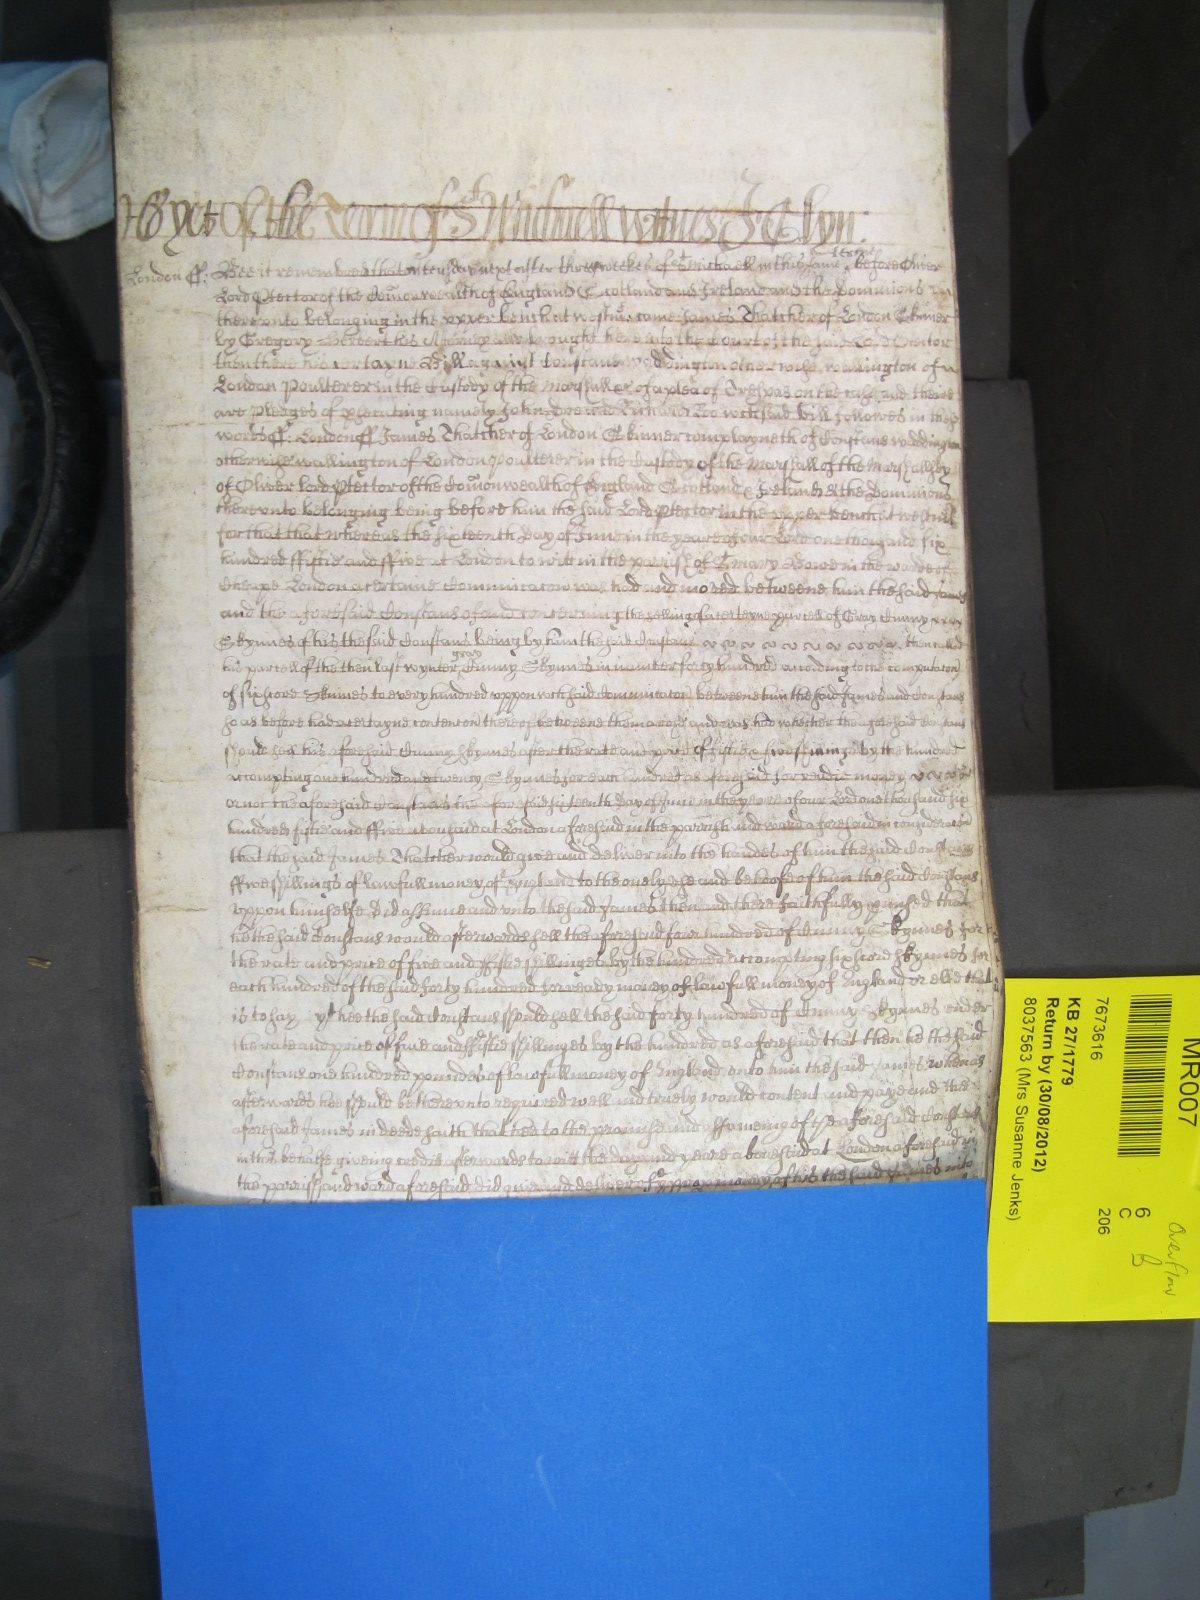 As yet of the Tearm of St Michaell witnes J Glyn:
London ss: Bee it remembred that on tuesday next after three weekes of St Michaell in this same terme before Oliver
Lord Protector of the Comonwealth of England Scotland and Ireland and the Dominions
thereunto belonging in the upper bench at westmr came James Thatcher of London Skinner
by Gregory his Attorney and brought here into the Court of the said Lord Protector
then there his certayne Bill against Constans waddington otherwise wallington of
London Poulterer in the Custody of the Marshall &c of a plea of Trespas on the case and there
are pledges of prosecuting namely John Doe and Richard Roe wch said bill followes in these
words ss: London ss James Thatcher of London Skinner complayneth of Constans waddington
otherwise wallington of London Poulterer in the Custody of the Marshall of the Marshalsey
of Oliver Lord Protector of the Comonwealth of England Scotland & Ireland & the Dominions
thereunto belonging being before him the said Lord Protector in the upper bench at westmr
for that that whereas the sixteenth day of June in the yeare of our Lord one thousand six
hundred fiftie and ffive at London to witt in the parish of St Mary Bowe in the warde of
Cheape London a certaine Communicacon was had and moved betweene him the said James
and the aforesaid Constans of and concerning the selling of a certeyne parcell of Gray Cunny
Skynnes of his the said Constans being by him the said Constans then called
his parcell of the then last wynter gray Cunny Skynnes in number forty hundred according to the computacon
of sixscore Skinnes to every hundred uppon wch said Communicacon betweene him the said James and Constans
so as before had a certayne contencon thereof betweene them arose and was had whether the aforesaid Constans
should sell his aforesaid Cunny Skynnes after the rate and price of fiftie & five shillings by the hundred
accompting one hundred and twenty Skynnes for each hundred as aforesaid for readie money
or not the aforesaid Constans the aforesaid sixteenth day of June in the yeare of our Lord one thousand six
hundred fiftie and ffive abovesaid at London aforesaid in the parrish and ward aforesaid in consideracon
that the said James Thatcher would give and deliver into the handes of him the said Constans
ffive shillings of lawfull money of England to the onely use and behoofe of him the said Constans
uppon himselfe did assume and unto the said James then and there faithfully promised that
he the said Constans would afterwards sell the aforesaid four hundred of Cunny Skynnes for
the rate and price of five and fiftie shillinges by the hundred accompting sixscore skynnes for
each hundred of the said forty hundred for ready money of lawfull money of England or else that
is to say yt hee the said Constans should sell the said forty hundred of Cunny Skynnes under
the rate and price of five and fiftie shillinges by the hundred as aforesaid that then he the said
Constans one hundred poundes of lawfull money of England unto him the said James whenas
afterwards hee should be thereunto required well and truely would content and paye and the
aforesaid James in deede saith that hee to the promise and assumeing of the aforesaid Constans
in this behalfe giveing credit afterwards to witt the day and yeare abovesaid at London aforesaid in
the parrish and ward aforesaid did give and deliver of the proper money of his the said James into
MR007
7673616
KB 27/1779
Return by (30/08/2012)
8037563 (Mrs Susanne Jenks)
6
C
206
Overflow